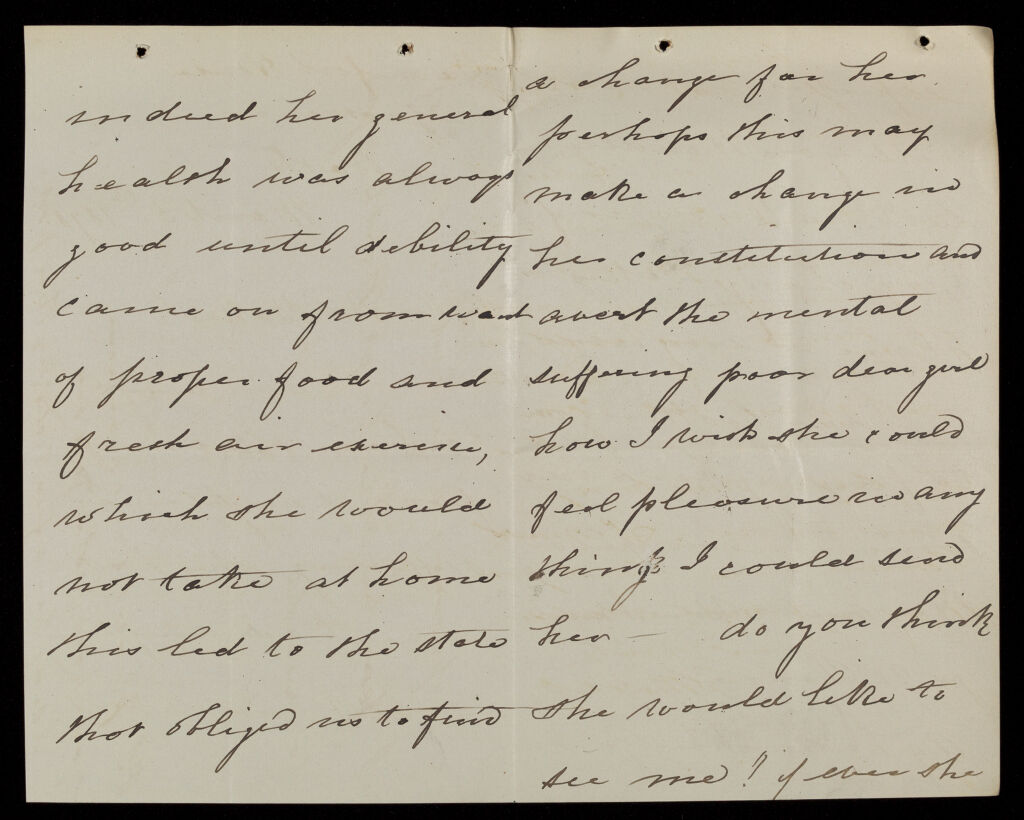 indeed her general
health was always
good until debility
came on from want
of proper food and
fresh air exercise,
which she would
not take at home
this led to the state
that obliged us to find
a change for her
perhaps this may
make a change in
her constitution and
avert the mental
suffering poor dear girl
how I wish she could
feel pleasure in any
thing I could send
her — do you think
she would like to
see me! if ever she